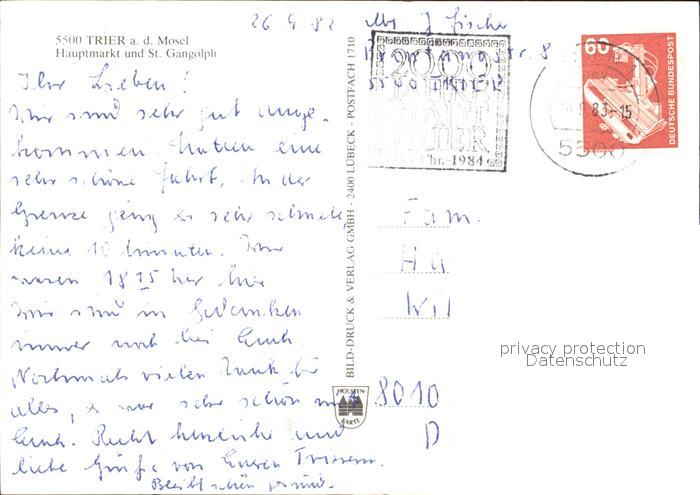 26 9 83
5500 TRIER a. d. Mosel
Hauptmarkt und St. Gangolph
Ihr Lieben!
Wir sind sehr gut ange-
kommen. Hatten eine
sehr schöne Fahrt, An der
Grenze ging es sehr schnell,
keine 10 Minuten. Wir
waren 18 15 hier
Wir sind in Gedanken
immer noch bei Euch.
Nochmals vielen Dank für
alles, es war sehr schön mit
Euch. Recht herzliche und
liebe Grüße von Euren Trierern.
Bleibt schön gesund.
BILD-DRUCK & VERLAG GMBH · 2400 LÜBECK · POSTFACH 1710
HOLSTEN-
KARTE
J Fischer
8
5500 TRIER
2000
Chr.-1984
60
DEUTSCHE BUNDESPOST
83-15
5500
Fam.
Ha
Wil
8010
D
privacy protection
Datenschutz